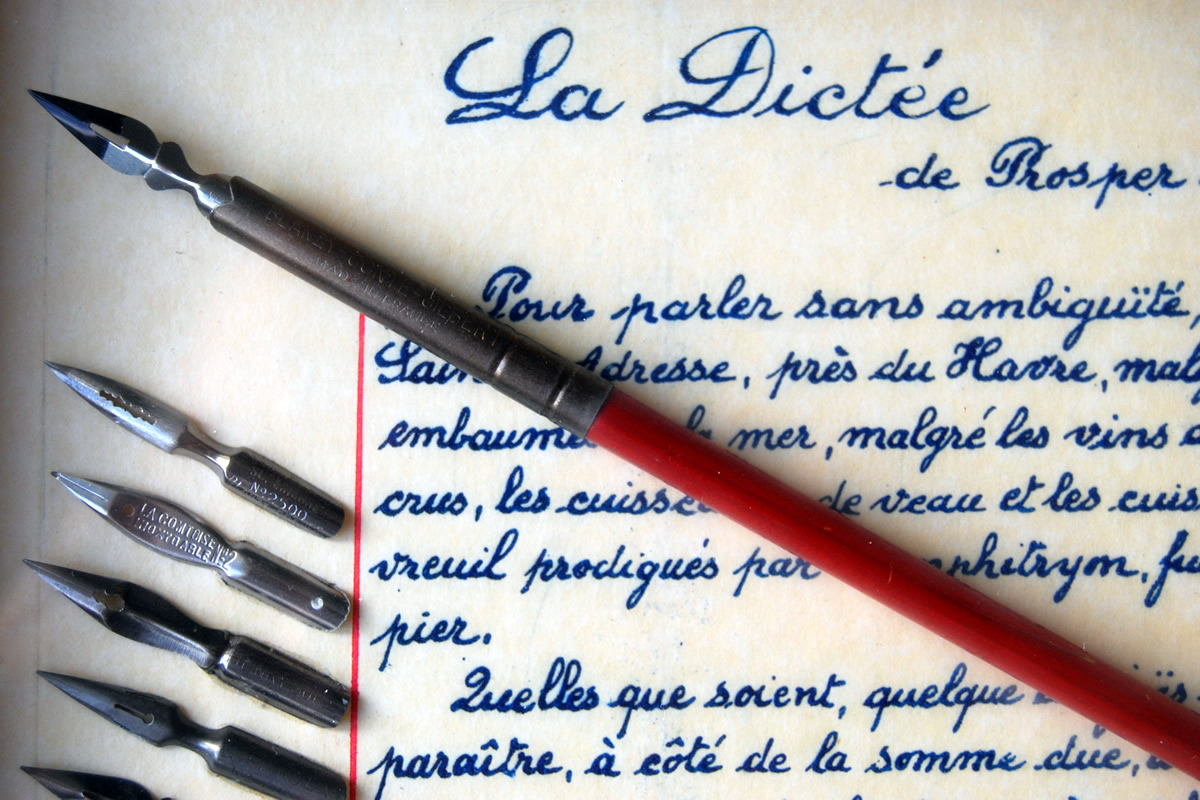 La Dictée
de Prosper
Pour parler sans ambiguïté,
dresse, près du Havre, mal
embaumé la mer, malgré les vins
crus, les cuisse de veau et les cuis
vreuil prodigués par phitryon, fu
pier.
Quelles que soient, quelque
paraître, à côté de la somme due,
No 2500
LA COMTOISE No2
INOXYDABLE